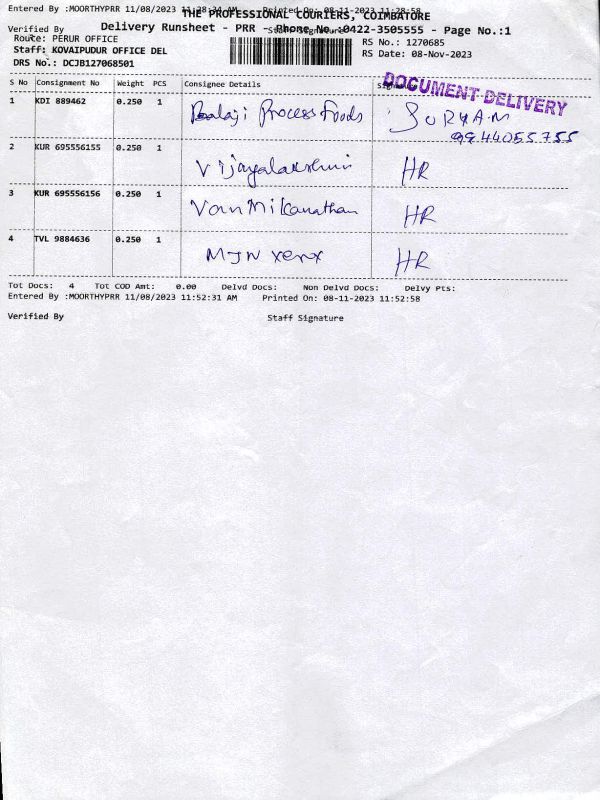 Entered By :MOORTHYPRR 11/08/2023 11:28:34 AM Printed On: 08-11-2023 11:28:58
THE PROFESSIONAL COURIERS, COIMBATORE
Verified By Staff Signature
Delivery Runsheet - PRR - Phone No.:0422-3505555 - Page No.:1
Route: PERUR OFFICE RS No.: 1270685
Staff: KOVAIPUDUR OFFICE DEL RS Date: 08-Nov-2023
DRS No.: DCJB127068501
DOCUMENT DELIVERY
S No Consignment No Weight PCS Consignee Details
1 KDI 889462 0.250 1 Balaji Process Foods SURYAM
9944055755
2 KUR 695556155 0.250 1 Vijayalakshmi HR
3 KUR 695556156 0.250 1 HR
4 TVL 9884636 0.250 1 HR
Tot Docs: 4 Tot COD Amt: 0.00 Delvd Docs: Non Delvd Docs: Delvy Pts:
Entered By :MOORTHYPRR 11/08/2023 11:52:31 AM Printed On: 08-11-2023 11:52:58
Verified By Staff Signature